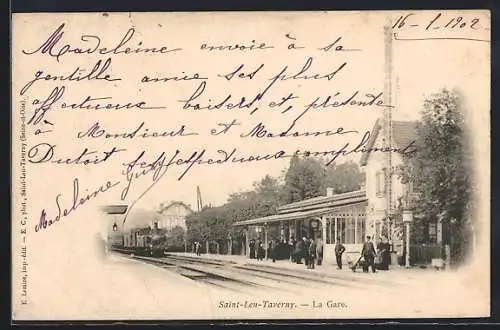 16-1-1902
Madeleine envoie à sa
gentille amie ses plus
affectueux baisers, et, présente
à Monsieur et Madame
Dutoit ses respectueux compliments
Madeleine
E. Lemire, imp.-édit. — E. C., phot., Saint-Leu-Taverny (Seine-et-Oise).
Saint-Leu-Taverny. — La Gare.